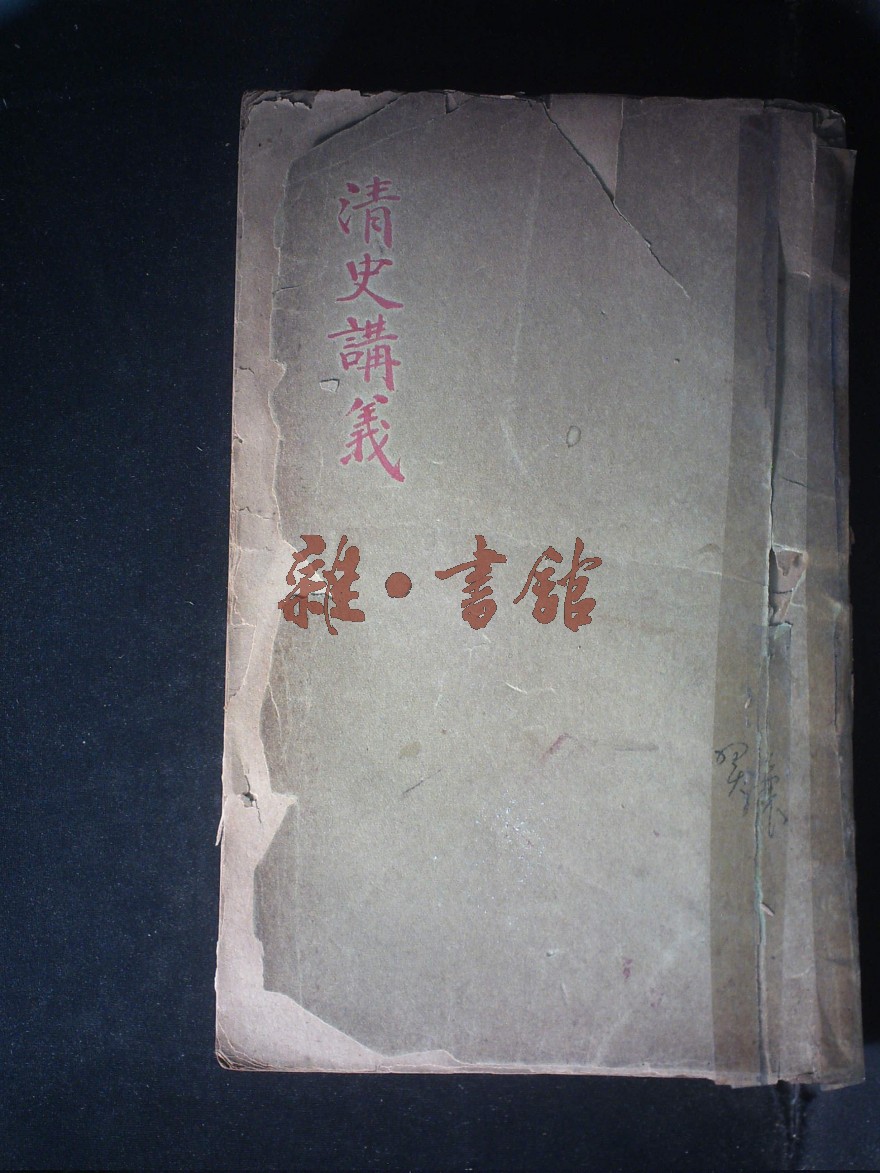 清史講義
雜·書館